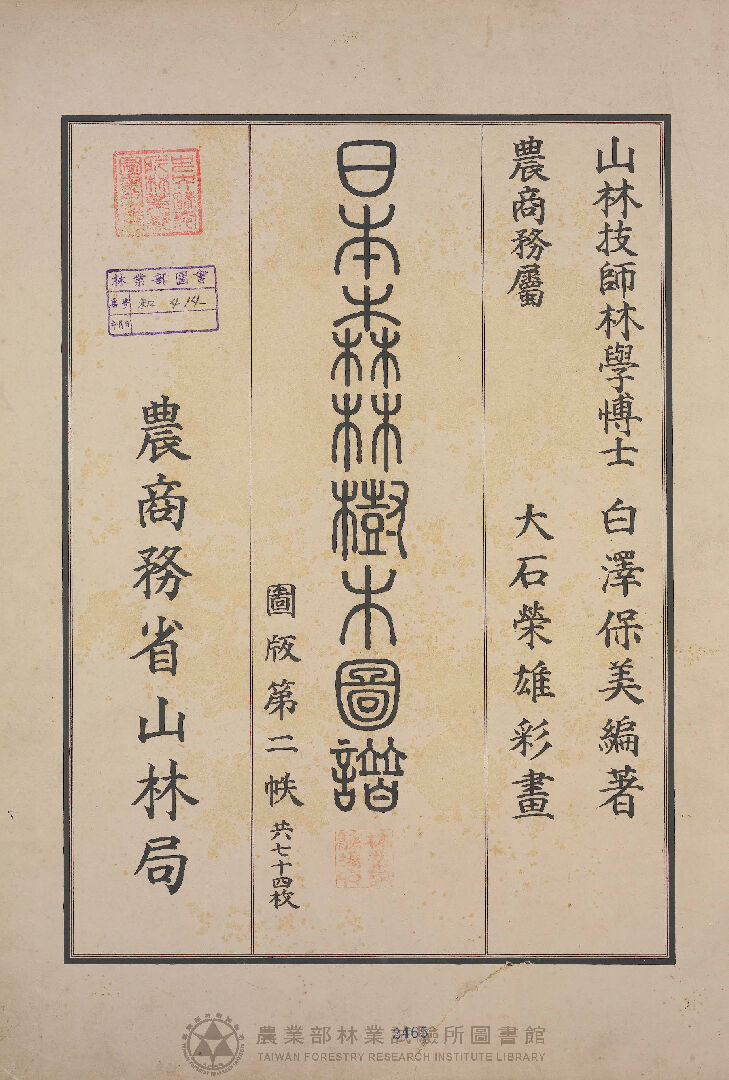 山林技師林學博士 白澤保美編著
農商務屬 大石榮雄彩畫
日本森林樹木圖譜
圖版第二帙 共七十四枚
農商務省山林局
林業部圖書
農業部林業試驗所圖書館
TAIWAN FORESTRY RESEARCH INSTITUTE LIBRARY
2465